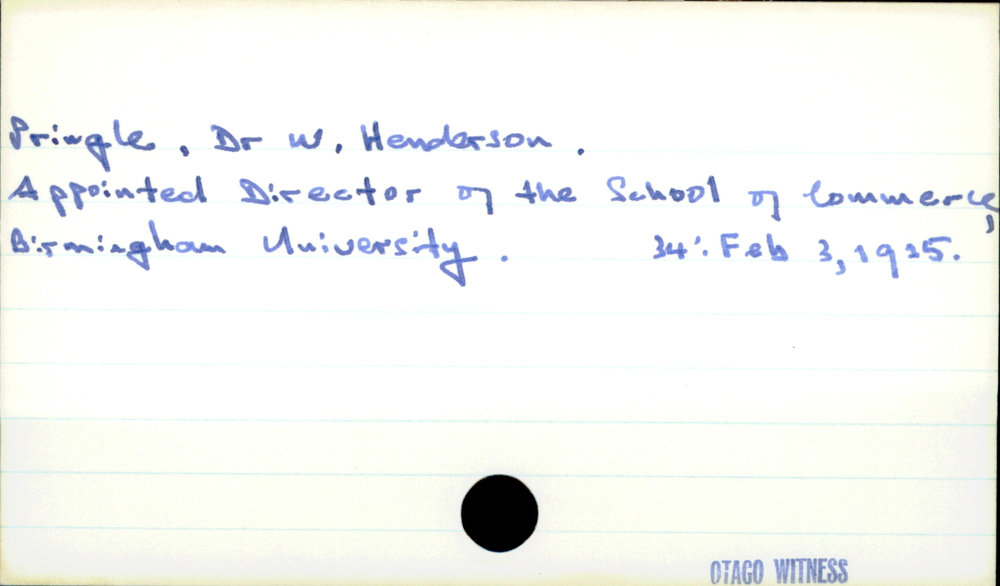 Pringle, Dr W. Henderson.
Appointed Director of the School of Commerce,
Birmingham University. 34'. Feb 3, 1925.
OTAGO WITNESS